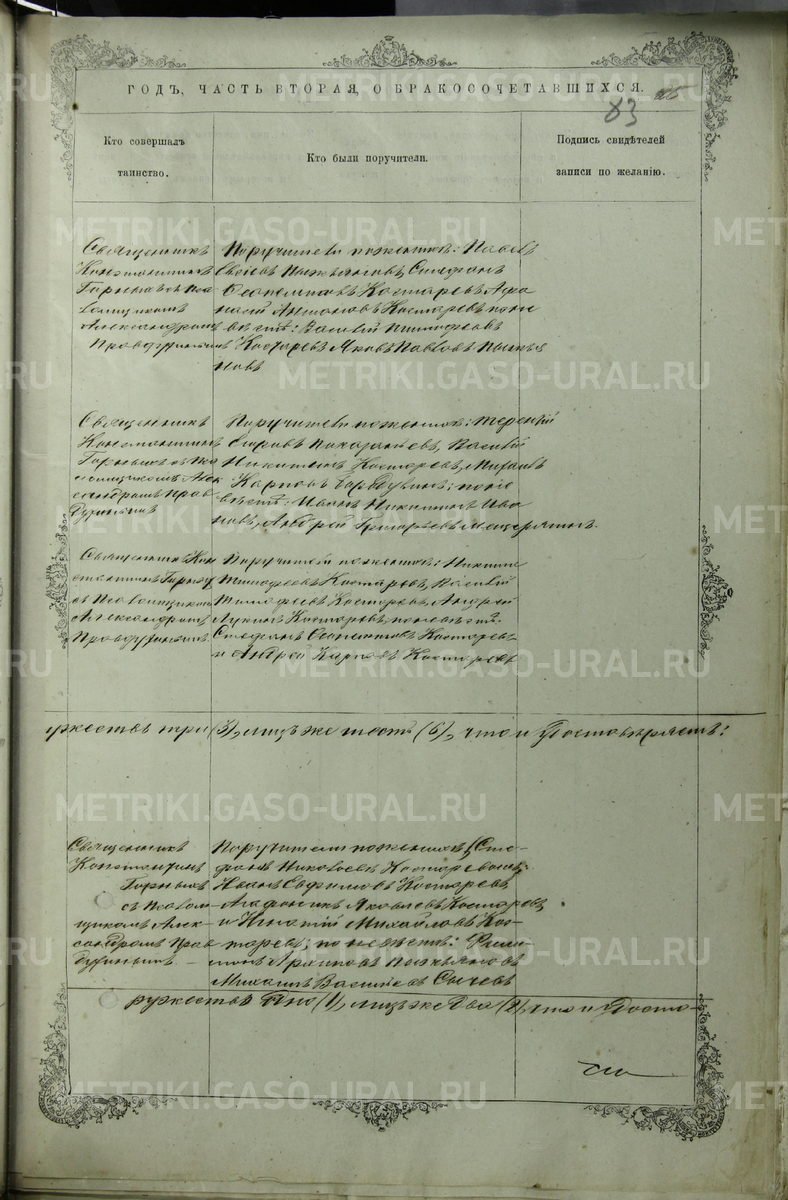 ГОДЪ, ЧАСТЬ ВТОРАЯ, О БРАКОСОЧЕТАВШИХСЯ.
83
Кто совершалъ таинство.
Кто были поручители.
Подпись свидѣтелей записи по желанію.
Священникъ
Константинъ
Горныхъ съ Пса
ломщикомъ
Александромъ
Правдухинымъ
Поручители по женихѣ: Павелъ
Стефанъ
Костаревъ, Афа
насій Антоновъ Костаревъ по не
вѣстѣ: Василій Тимофеевъ
Костаревъ Яковъ Павловъ
Священникъ
Константинъ
Горныхъ съ Пса
ломщикомъ Алек
сандромъ Прав
духинымъ
Поручители по женихѣ: Терентій
Василій
Никитинъ Костаревъ, Михаилъ
Карповъ по не
вѣстѣ: Иванъ Никитинъ Ива
новъ, Андрей Григорьевъ
Священникъ Кон
стантинъ Горныхъ
съ Псаломщикомъ
Александромъ
Правдухинымъ
Поручители по женихѣ: Никита
Тимофеевъ Костаревъ, Василій
Тимофеевъ Костаревъ, Андрей
Лукинъ Костаревъ, по невѣстѣ:
Стефанъ Костаревъ
и Андрей Карповъ Костаревъ
ружествъ три (3), лицъ же шесть (6), что и удостовѣряетъ:
Священникъ
Константинъ
Горныхъ
съ Псалом-
щикомъ Алек-
сандромъ Прав
духинымъ
Поручители по женихѣ: Сте-
фанъ Николаевъ Костаревъ
Иванъ Евфимовъ Костаревъ,
Агафоникъ Яковлевъ Костаревъ,
и Игнатій Михайловъ Кос-
таревъ; по невѣстѣ: Фили-
Михаилъ Васильевъ Сычевъ
ружествъ одно (1), лицъ же два (2), что и удосто-
METRIKI.GASO-URAL.RU